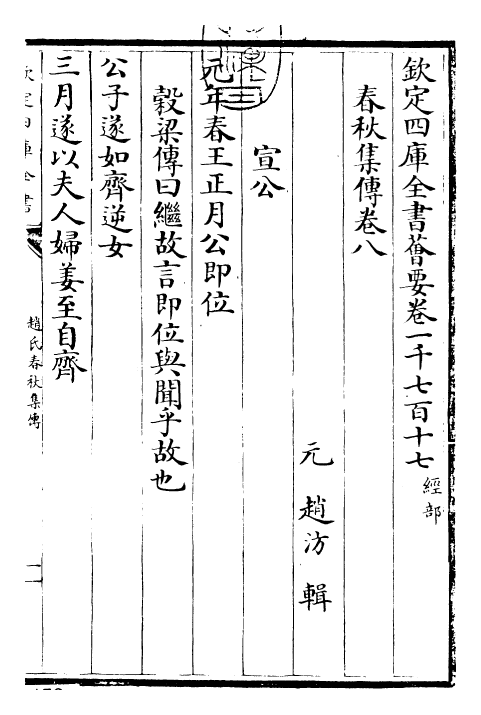 欽定四庫全書薈要卷一千七百十七 經部
春秋集傳卷八
元 趙汸 輯
宣公
元年春王正月公即位
穀梁傳曰繼故言即位與聞乎故也
公子遂如齊逆女
三月遂以夫人婦姜至自齊
欽定四庫全書
趙氏春秋集傳
一